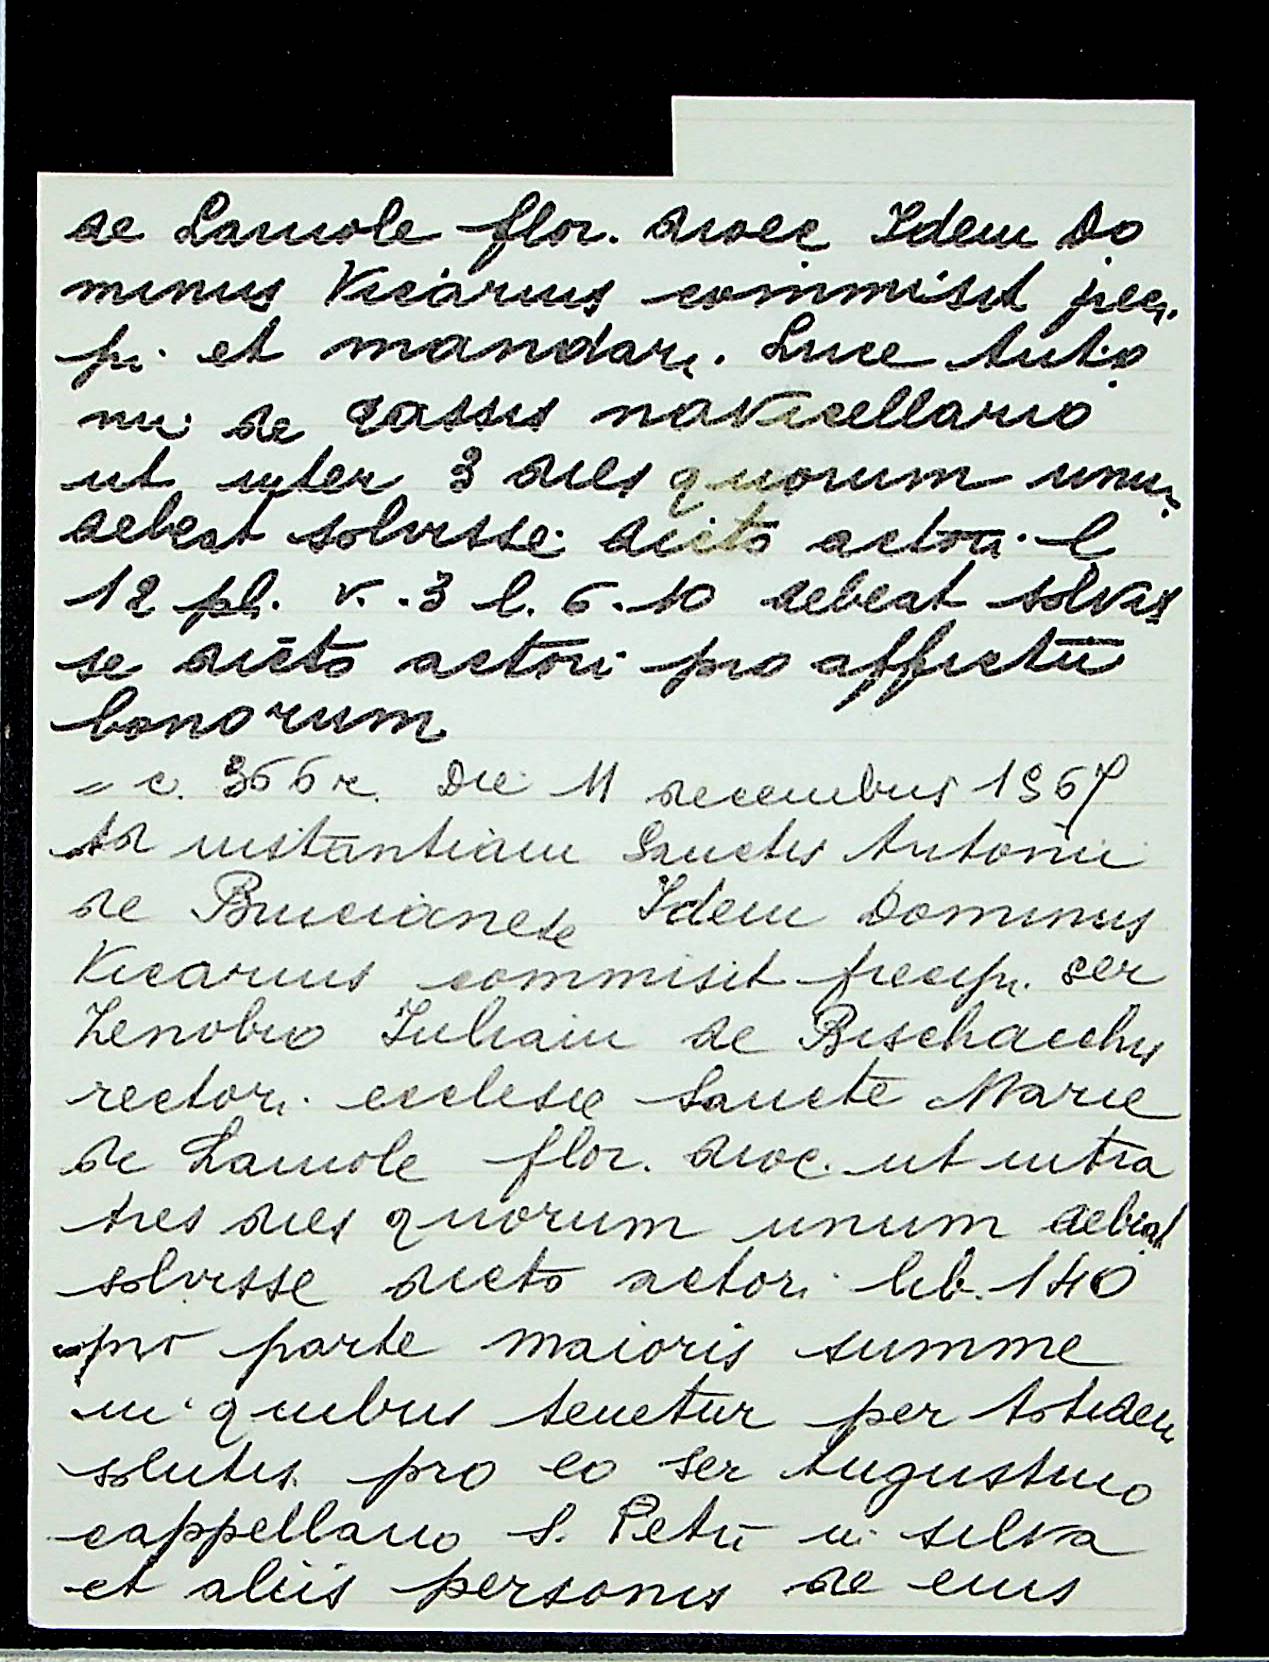 de Lamole flor. dioec Idem Do
minus Vicarius commisit prec.
pi. et mandari. Luce Anto
nii de Cassis navicellario
ut inter 3 dies quorum unum
debeat solvisse dicto actori l.
12 pl. v. .3 l. 6. 10 debeat solvis
se dicto actori pro affictu
bonorum
= c. 366 r. Die 11 decembris 1567
Ad instantiam Sanctis Antonii
de Brucianese Idem Dominus
Vicarius commisit precipi. ser
Zenobio Iuliani de Bischacchis
rectori. ecclesie Sancte Marie
de Lamole flor. dioc. ut intra
tres dies quorum unum debeat
solvisse dicto actori lib. 140
pro parte maioris summe
in quibus tenetur per totidem
solutis pro eo ser Augustino
cappellano S. Petri in silva
et aliis personis de eius